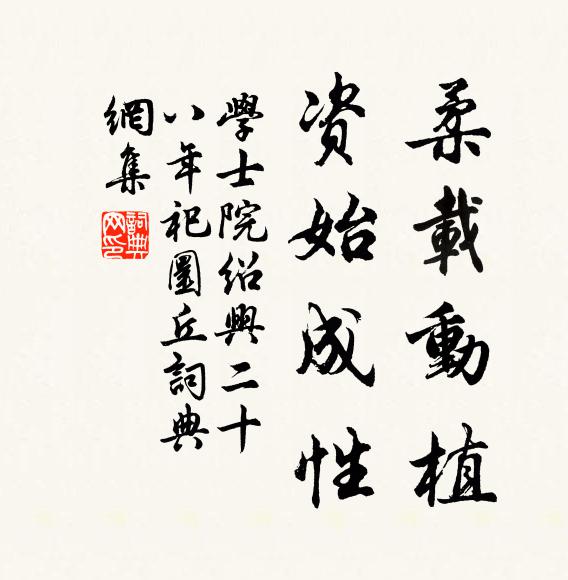 柔載動植
資始成性
學士院紹興二十
八年祀圜丘詞典
網集
詞典
网印